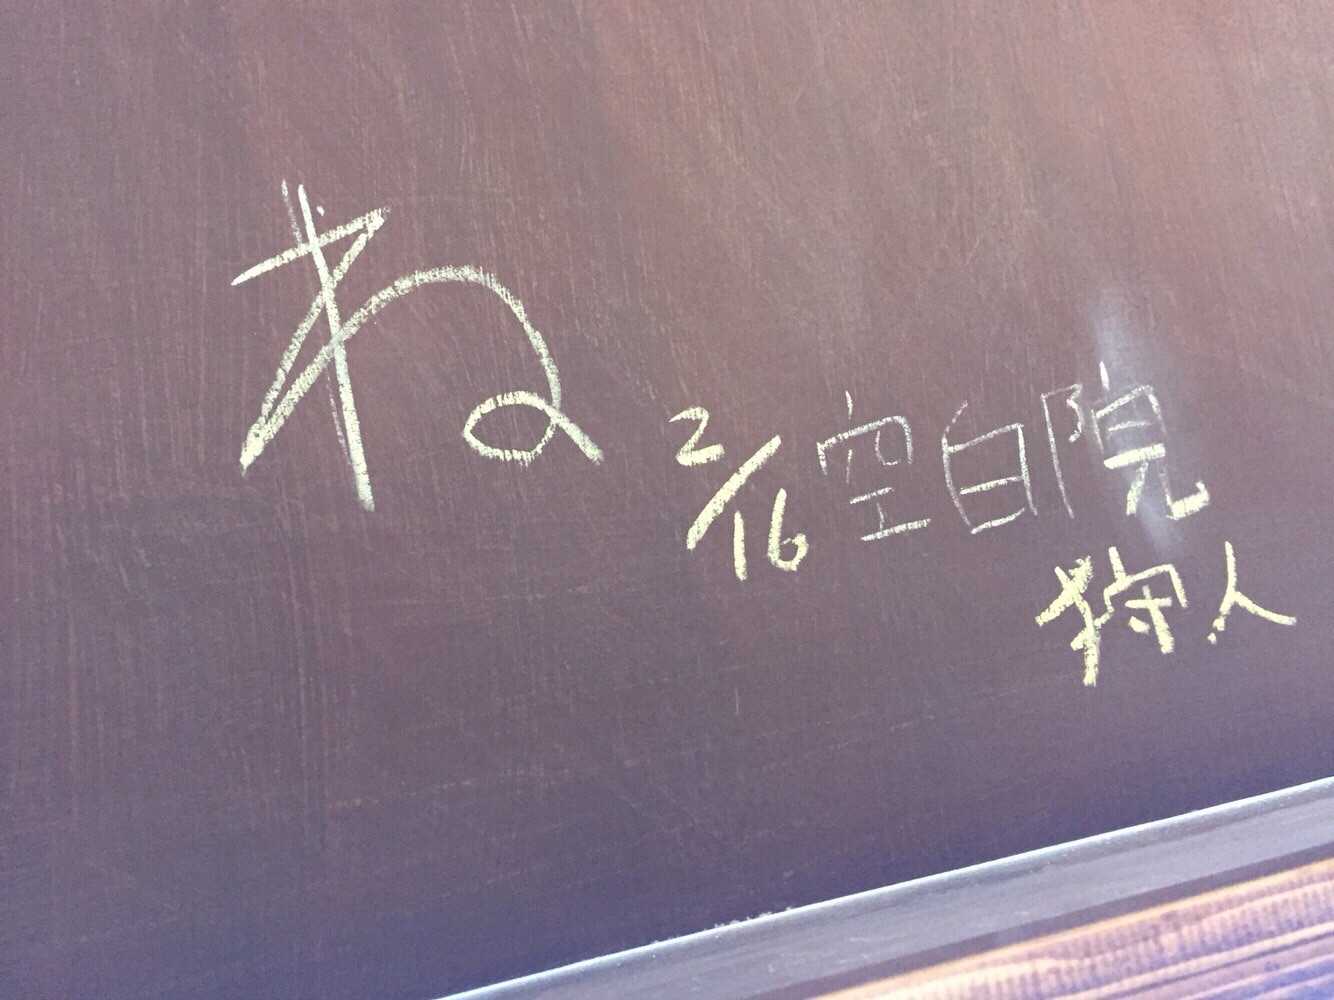 ね
2/16 空白院
狩人